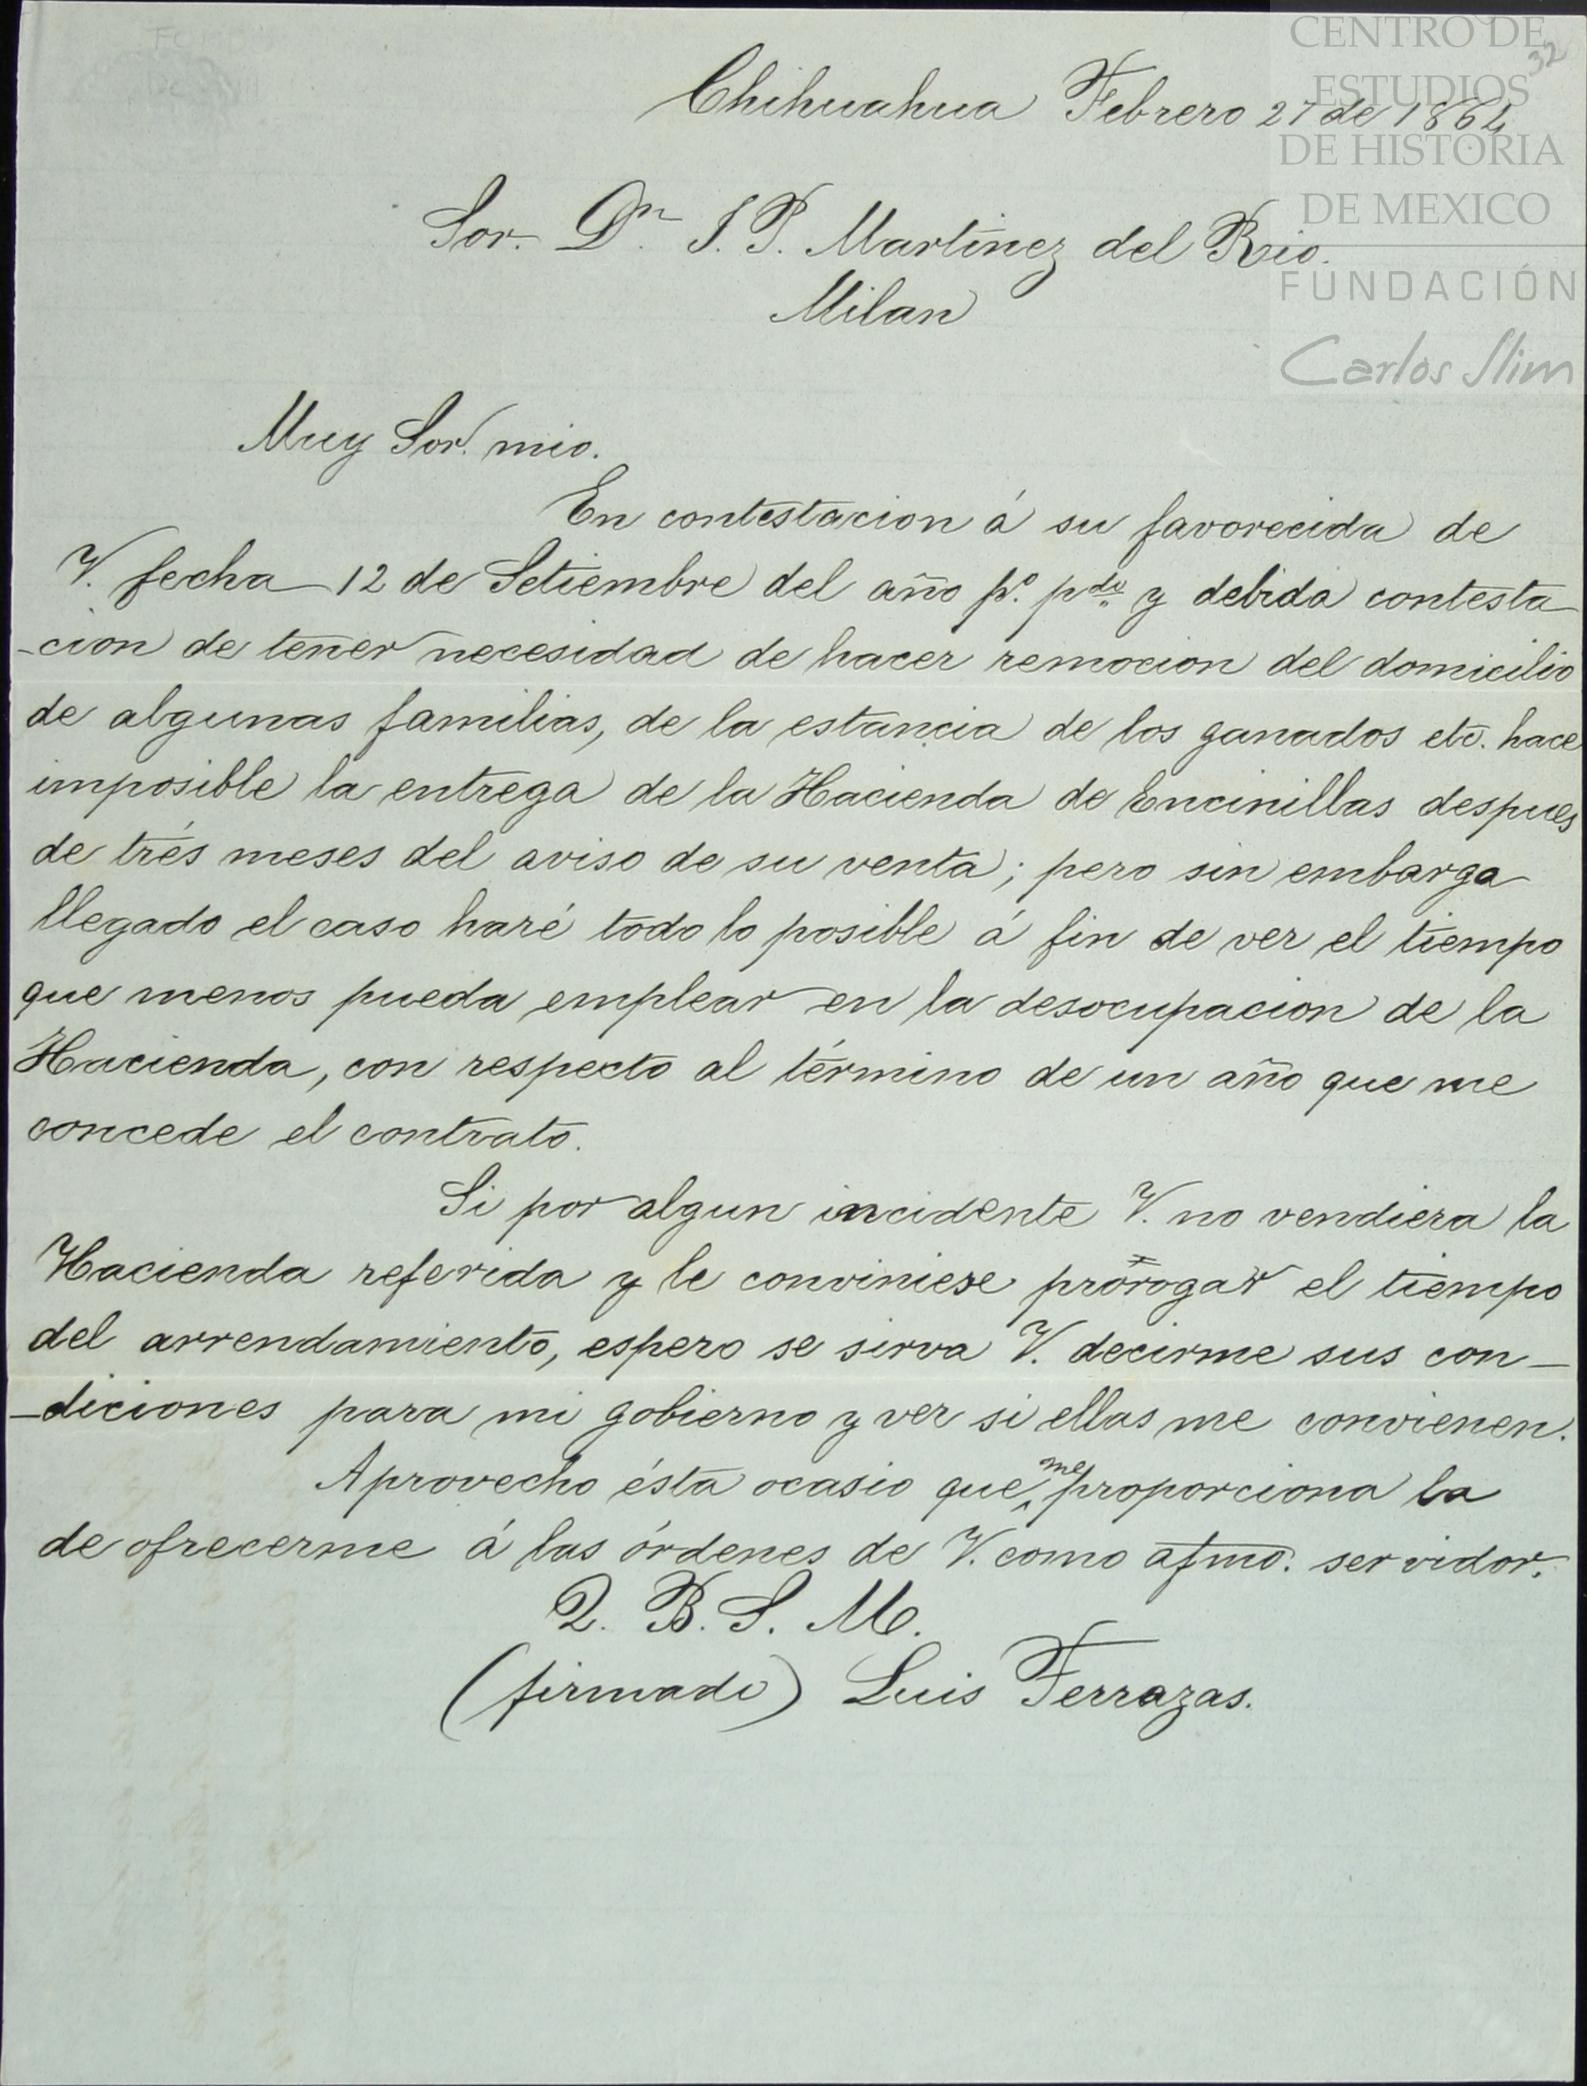 CENTRO DE
ESTUDIOS
DE HISTORIA
DE MEXICO
FUNDACIÓN
Carlos Slim
32
Chihuahua Febrero 27 de 1864
Sor. Dn. J. P. Martinez del Rio.
Milan
Muy Sor. mio.
En contestacion á su favorecida de
V. fecha 12 de Setiembre del año po. pdo. y debida contesta-
-cion de tener necesidad de hacer remocion del domicilio
de algunas familias, de la estancia de los ganados etc. hace
imposible la entrega de la Hacienda de Encinillas despues
de trés meses del aviso de su venta; pero sin embargo
llegado el caso haré todo lo posible á fin de ver el tiempo
que menos pueda emplear en la desocupacion de la
Hacienda, con respecto al término de un año que me
concede el contrato.
Si por algun incidente V. no vendiera la
Hacienda referida y le conviniese prorogar el tiempo
del arrendamiento, espero se sirva V. decirme sus con-
-diciones para mi gobierno y ver si ellas me convienen.
Aprovecho ésta ocasio que me proporciona la
de ofrecerme á las órdenes de V. como afmo. servidor.
Q. B. S. M.
(firmado) Luis Terrazas.